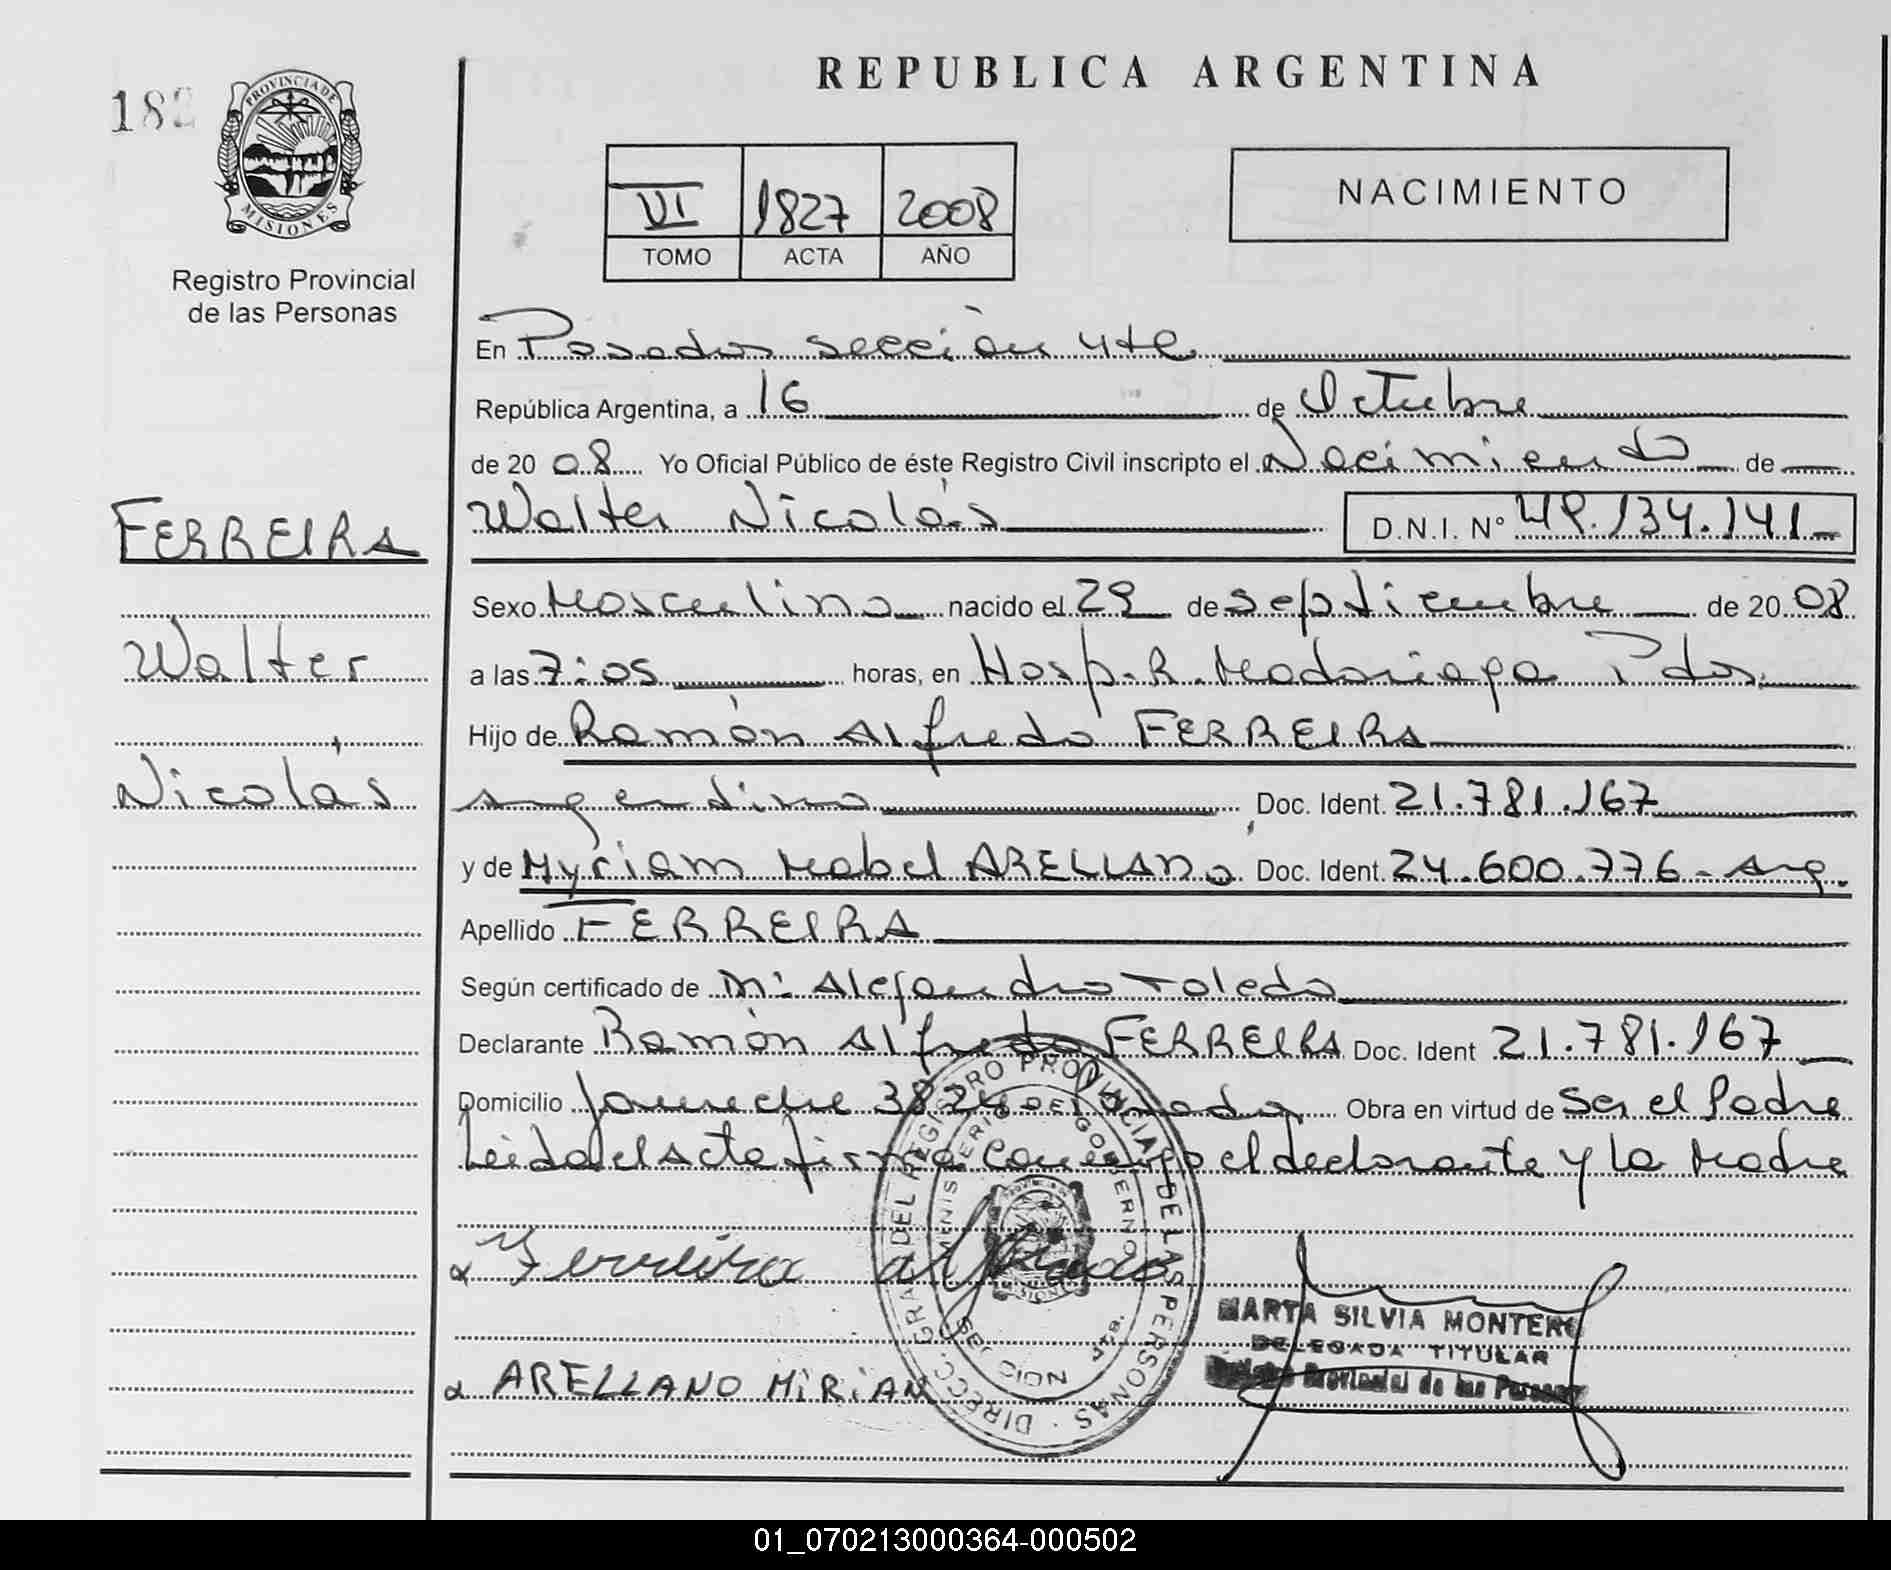 REPUBLICA ARGENTINA
182
PROVINCIA DE
MISIONES
Registro Provincial
de las Personas
VI 1827 2008
TOMO ACTA AÑO
NACIMIENTO
En Posadas sección 4ta
República Argentina, a 16 de Octubre
de 20 08 Yo Oficial Público de éste Registro Civil inscripto el Nacimiento de
Walter Nicolás D.N.I. Nº 49.134.141.-
FERREIRA
Walter
Nicolás
Sexo Masculino nacido el 29 de septiembre de 20 08
a las 7:05 horas, en Hosp. R. Madariaga Pdas.
Hijo de Ramón Alfredo FERREIRA
argentino Doc. Ident. 21.781.167
y de Myriam Mabel ARELLANO Doc. Ident. 24.600.776- arg.
Apellido FERREIRA
Según certificado de Mª Alejandra Toledo
Declarante Ramón Alfredo FERREIRA Doc. Ident 21.781.167
Domicilio Jaureche 3824 Posadas Obra en virtud de Ser el Padre
Leida el acta firma conmigo el declarante y la Madre
Ferreira Alfredo
ARELLANO MIRIAN
DIRECC. GRAL DEL REGISTRO PROVINCIAL DE LAS PERSONAS
MINISTERIO DE GOBIERNO
MARTA SILVIA MONTERO
DELEGADA TITULAR
Registro Provincial de las Personas
01_070213000364-000502